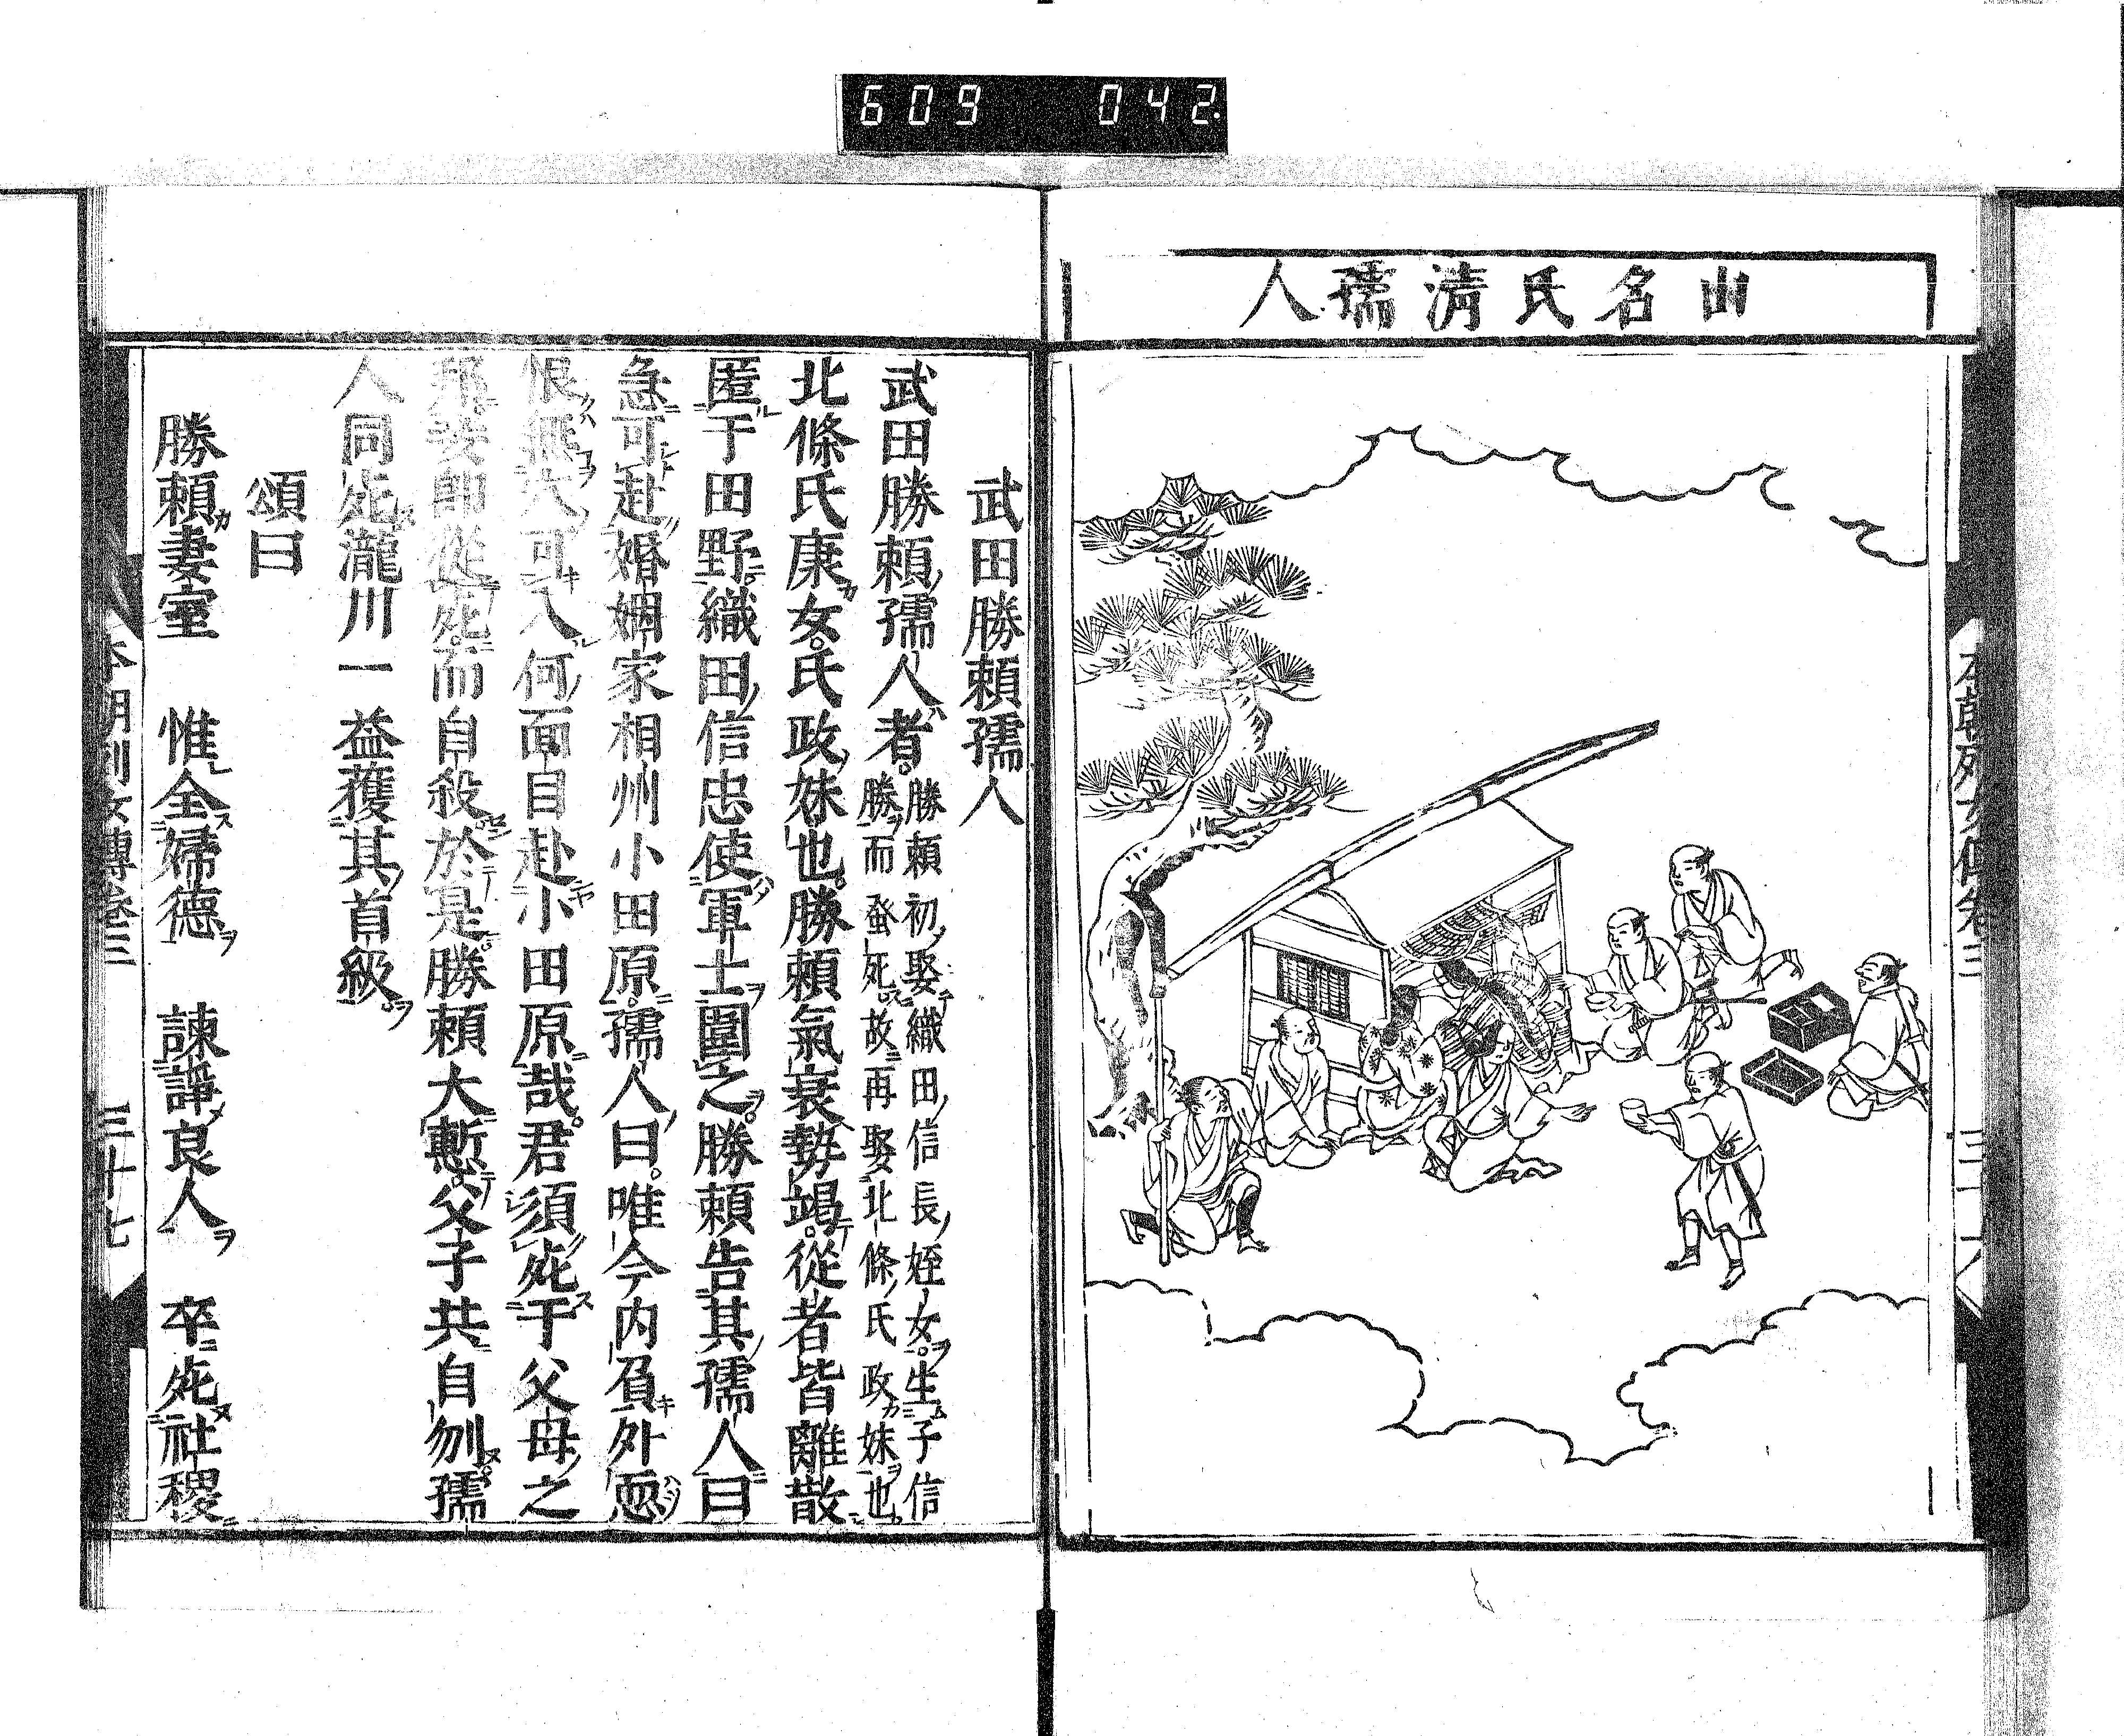 609 042
山名氏清孺人
本朝列女傳卷三 三十六
武田勝頼孺人
武田勝頼孺人者。勝頼初娶織田信長姪女。生子信
勝而蚤死。故再娶北條氏政妹也
北條氏康女。氏政妹也。勝頼氣衰勢竭。從者皆離散
匿于田野。織田信忠使軍士圍之。勝頼告其孺人曰
急可赴婚姻家相州小田原。孺人曰。唯今内負外恧
恨無穴可入何面目赴小田原哉。君須死于父母之
邦。妾即從死。而自殺於是勝頼大慙。父子共自刎。孺
人同死瀧川一益獲其首級
頌曰
勝頼妻室 惟全婦德 諫諍良人 卒死社稷
本朝列女傳卷三 三十七